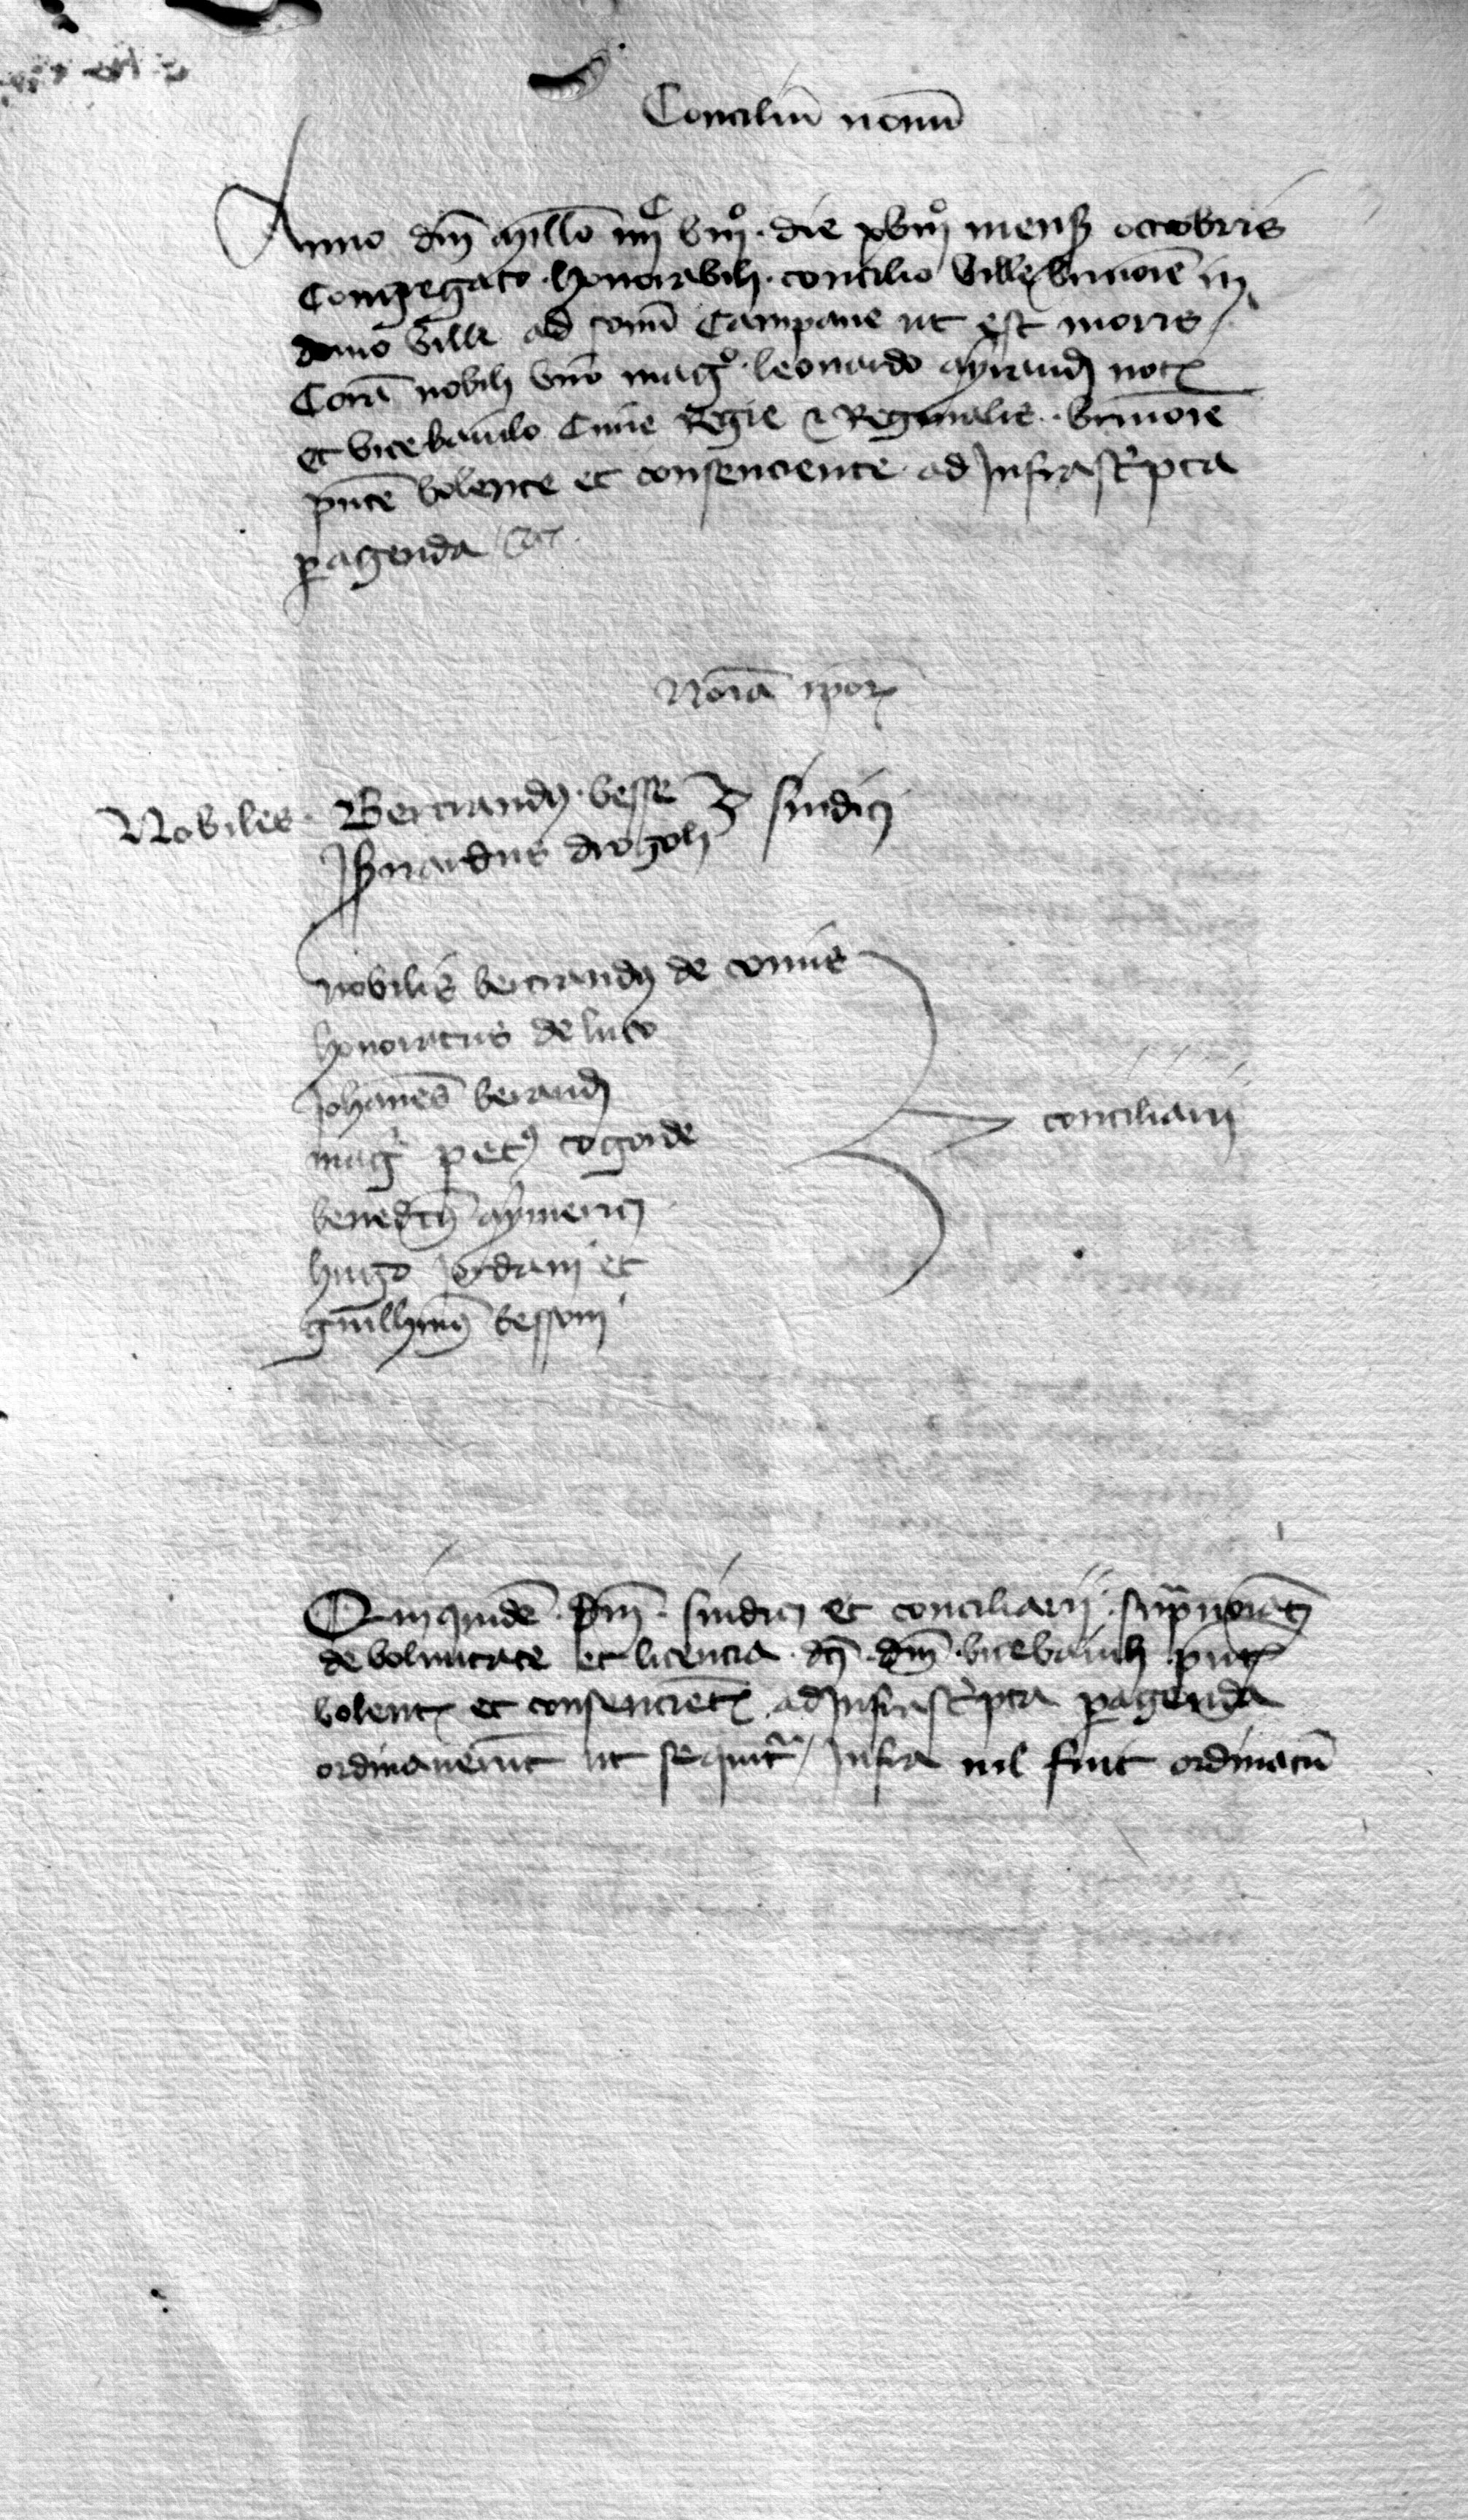 Conciliū nonū
Anno dnī millō iiiiᶜ viiiº die xviiiº mens octobris
Congregato honorabili concilio ville brinoīe in
domo ville ad sonū Campane ut est moris
Corā nobili viro magº leonardo ayraudi not
et vicebaiulo Curie Regie et Reginalis brinoīe
pntē volente et consenciente ad Infrascripta
peragenda
Noīa ipor
Nobiles Bertrandus besse
Isnardus drogoli sindici
nobilis bertrandus de comis
honoratus de luco
Johanēs beraudi
magr petrus cogorde conciliarii
benedictus aymerici
hugo Jordani et
guillhmus bessoni
Quiquidē dnī sindici et conciliarii supᵃnoīati
de voluntate et licencia dci dnī vicebaiuli pnt
volent et consencient ad Infrascripta peragenda
ordinaverūt ut sequitr Infra nil fuit ordinatū